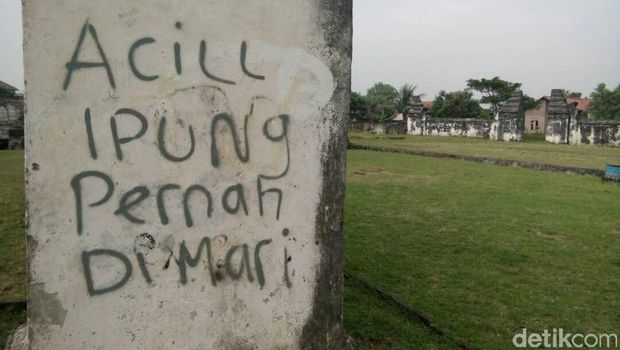 ACiLL
IPUNg
Pernah
Di Mari
detikcom